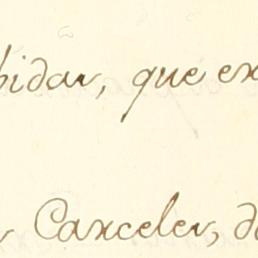 bidar, que ex
Canceler, d